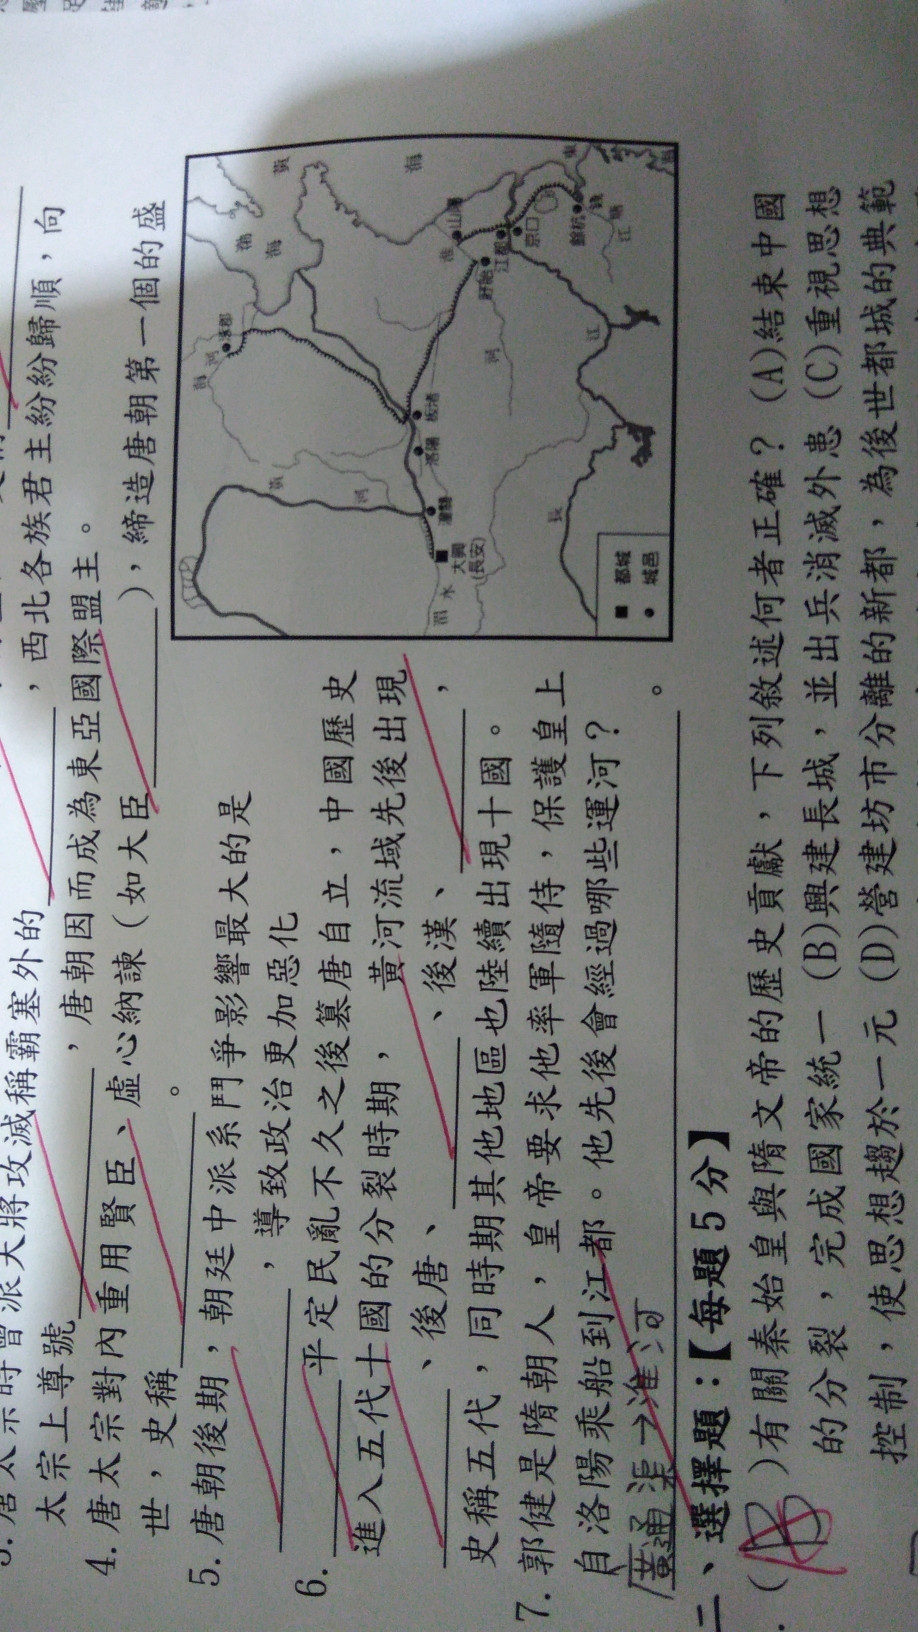 太宗時曾派大將攻滅稱霸塞外的，西北各族君主紛紛歸順，向
太宗上尊號，唐朝因而成為東亞國際盟主。
4. 唐太宗對內重用賢臣、虛心納諫（如大臣），締造唐朝第一個的盛
世，史稱。
5. 唐朝後期，朝廷中派系鬥爭影響最大的是
，導致政治更加惡化
6. 平定民亂不久之後篡唐自立，中國歷史
進入五代十國的分裂時期，黃河流域先後出現
、後唐、、後漢、，
史稱五代，同時期其他地區也陸續出現十國。
7. 郭健是隋朝人，皇帝要求他率軍隨侍，保護皇上
自洛陽乘船到江都。他先後會經過哪些運河？
廣通渠→淮河。
渤海
黃海
東
海
涿郡
河
黃
河
板渚
洛陽
潼關
大興
(長安)
渭水
淮
山陽
江都
盱眙
京口
餘杭
錢塘江
河
長
江
■ 都城
● 城邑
二、選擇題：【每題5分】
(AB)有關秦始皇與隋文帝的歷史貢獻，下列敘述何者正確？ (A)結束中國
的分裂，完成國家統一 (B)興建長城，並出兵消滅外患 (C)重視思想
控制，使思想趨於一元 (D)營建坊市分離的新都，為後世都城的典範